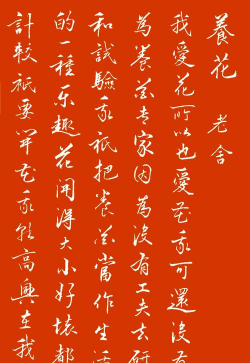 養花 老舍
我愛花所以也愛花我可還沒有
為養花專家因為沒有工夫去研
和試驗我祇把養花當作生活
的一種乐趣花開得大小好壞都
計較祇要開花我就高興在我